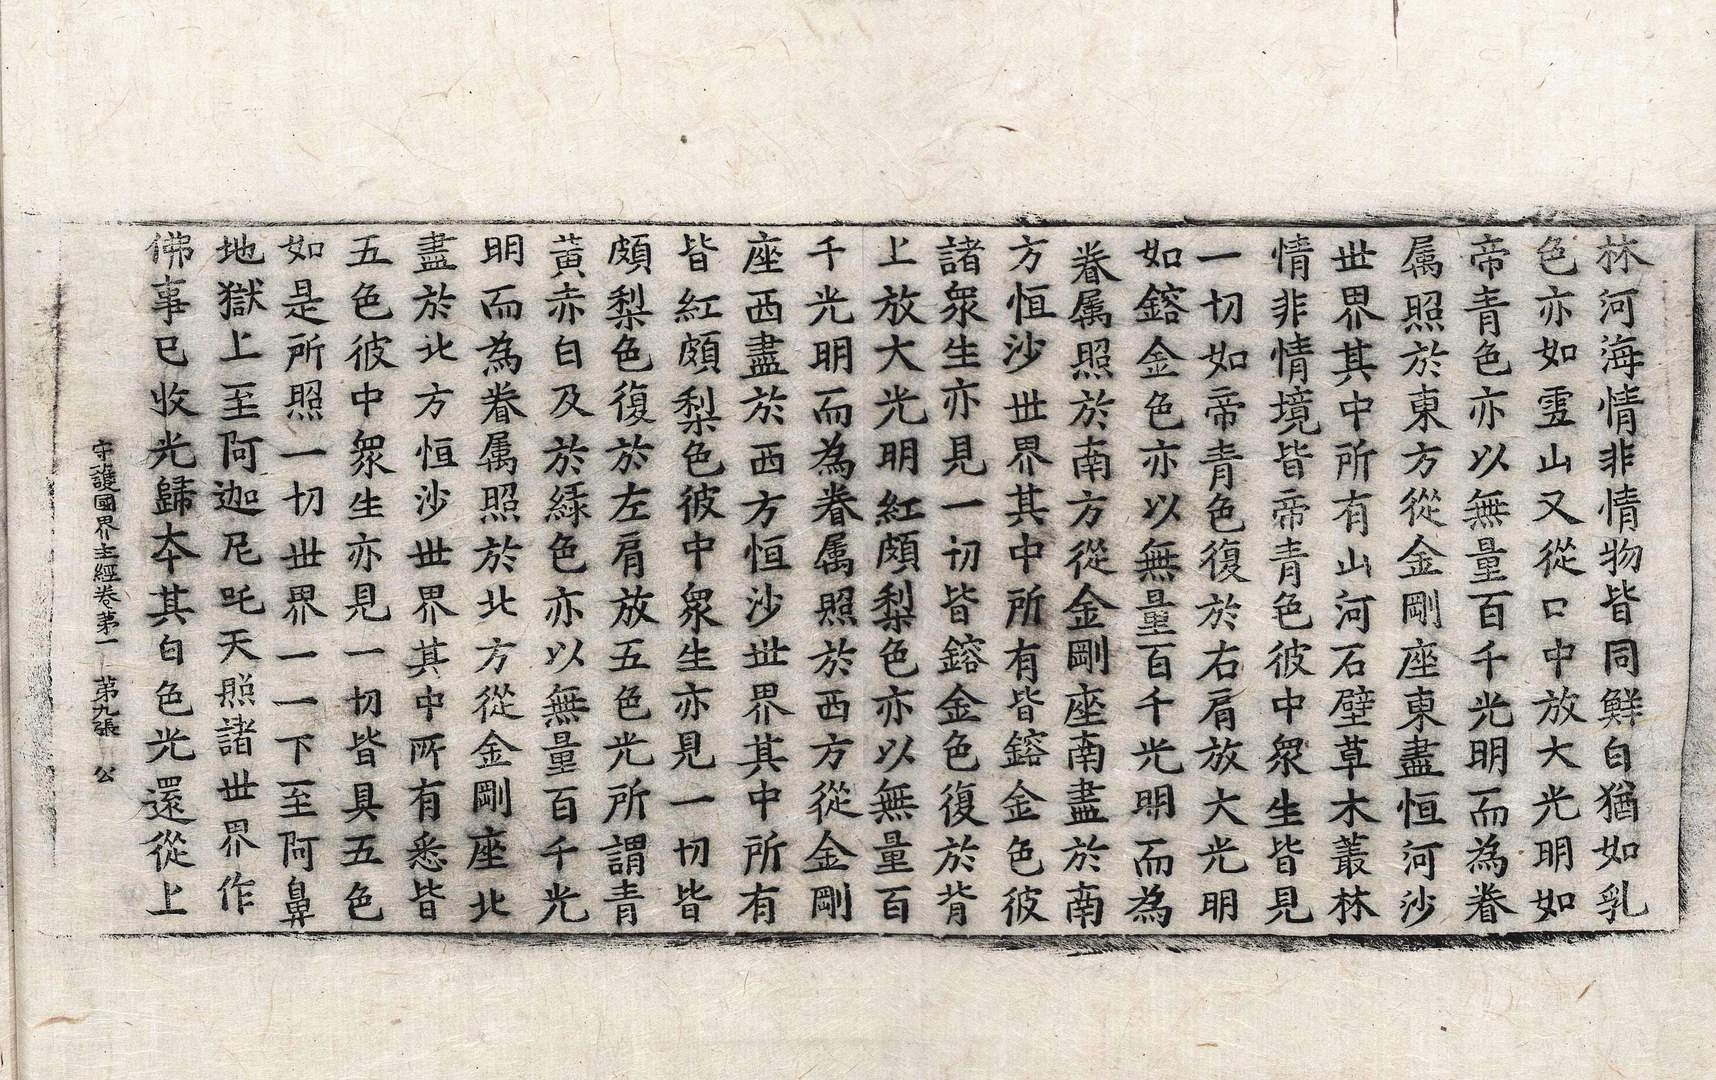 林河海情非情物皆同鮮白猶如乳
色亦如雪山又從口中放大光明如
帝青色亦以無量百千光明而為眷
属照於東方從金剛座東盡恒河沙
世界其中所有山河石壁草木叢林
情非情境皆帝青色彼中衆生皆見
一切如帝青色復於右肩放大光明
如鎔金色亦以無量百千光明而為
眷属照於南方從金剛座南盡於南
方恒沙世界其中所有皆鎔金色彼
諸衆生亦見一切皆鎔金色復於背
上放大光明紅頗梨色亦以無量百
千光明而為眷属照於西方從金剛
座西盡於西方恒沙世界其中所有
皆紅頗梨色彼中衆生亦見一切皆
頗梨色復於左肩放五色光所謂青
黃赤白及於緑色亦以無量百千光
明而為眷属照於北方從金剛座北
盡於北方恒沙世界其中所有悉皆
五色彼中衆生亦見一切皆具五色
如是所照一切世界一一下至阿鼻
地獄上至阿迦尼吒天照諸世界作
佛事已收光歸夲其白色光還從上
守護國界主經卷第一 第九張 公